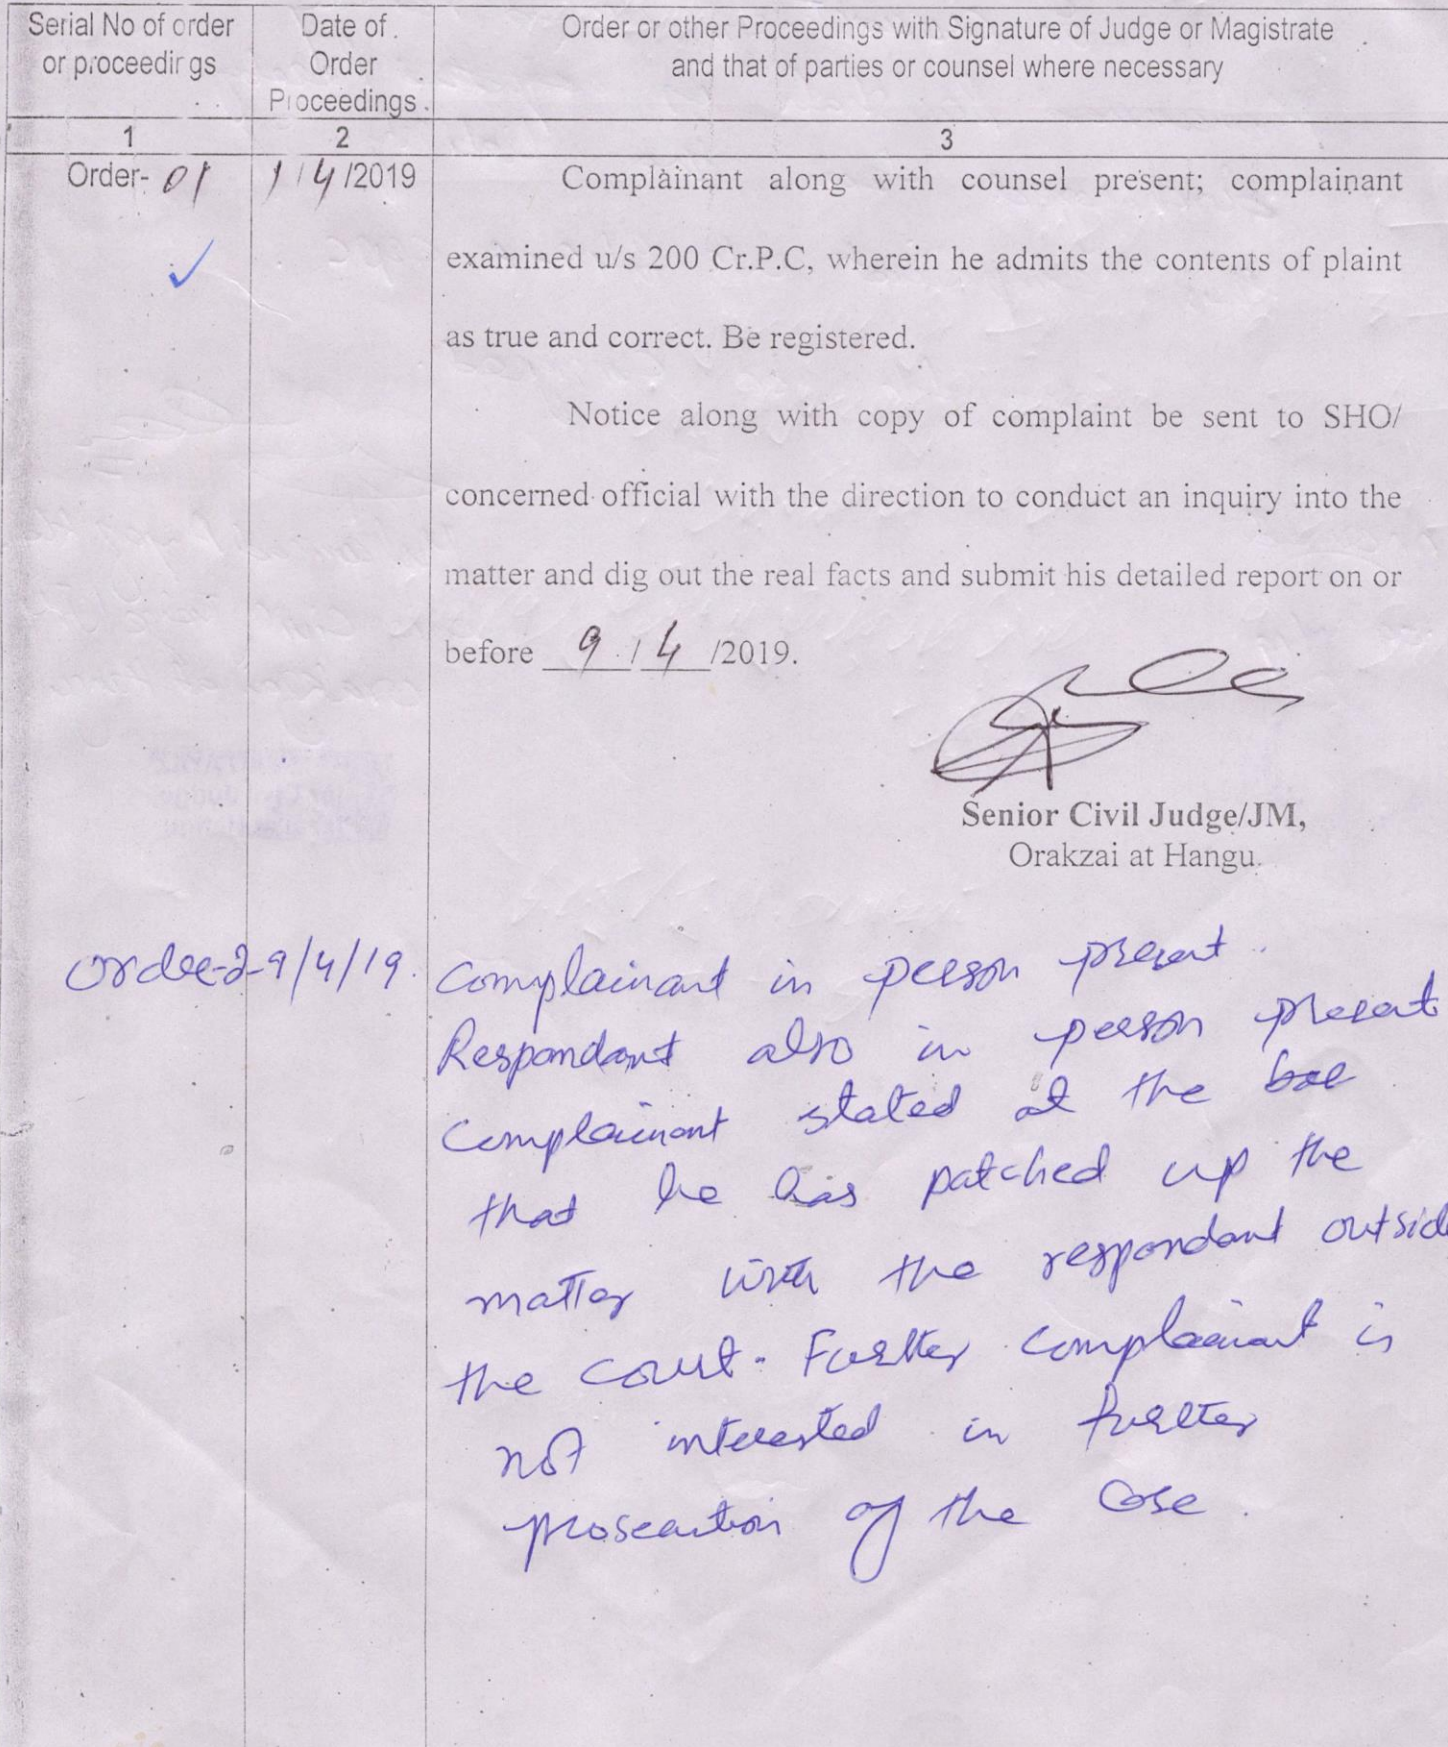 Serial No of order or proceedings
Date of Order Proceedings
Order or other Proceedings with Signature of Judge or Magistrate and that of parties or counsel where necessary
1 2 3
Order- 01 1/4/2019 Complainant along with counsel present; complainant
examined u/s 200 Cr.P.C, wherein he admits the contents of plaint
as true and correct. Be registered.
Notice along with copy of complaint be sent to SHO/
concerned official with the direction to conduct an inquiry into the
matter and dig out the real facts and submit his detailed report on or
before 9/4/2019.
Senior Civil Judge/JM,
Orakzai at Hangu.
Order-2- 9/4/19. Complainant in person present.
Respondant also in person present
Complainant stated at the bar
that he has patched up the
matter with the respondant outside
the court. Further complainant is
not interested in further
prosecution of the case.